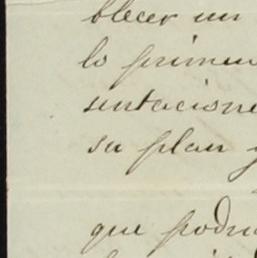 blecer un
lo primer
sentacione
su plan y
que podri